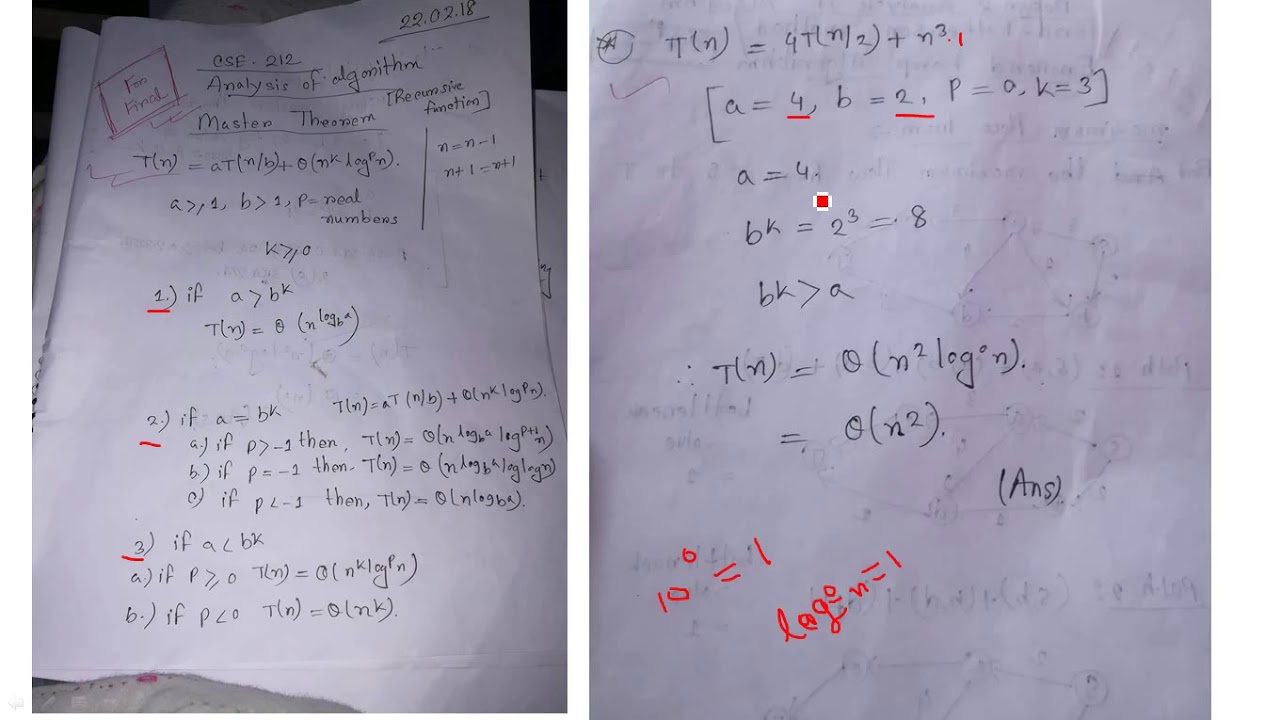 22.02.18
For
Final
CSE. 212
Analysis of algorithm
[Recursive
function]
Master Theorem
T(n) = aT(n/b) + θ(n^k log^p n).
n = n - 1
n+1 = n+1
a ≥ 1, b > 1, P = real
numbers
k ≥ 0
1.) if a > b^k
T(n) = θ (n^log_b a)
2.) if a = b^k T(n) = aT(n/b) + θ(n^k log^p n).
a.) if p > -1 then, T(n) = θ(n^log_b a log^p+1 n)
b.) if p = -1 then. T(n) = θ (n^log_b a log log n)
c) if p < -1 then, T(n) = θ(n^log_b a).
3) if a < b^k
a.) if P ≥ 0 T(n) = θ(n^k log^p n)
b.) if p < 0 T(n) = θ(n^k).
T(n) = 4T(n/2) + n^3.1
[a = 4, b = 2, P = 0, k = 3]
a = 4
b^k = 2^3 = 8
b^k > a
∴ T(n) = θ(n^2 log^0 n).
= θ(n^2).
(Ans).
10^0 = 1
log^0 n = 1